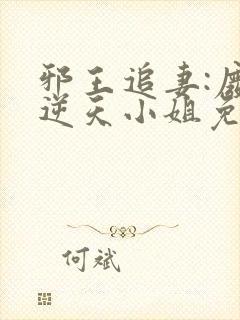 邪王追妻:废
逆天小姐免
何斌